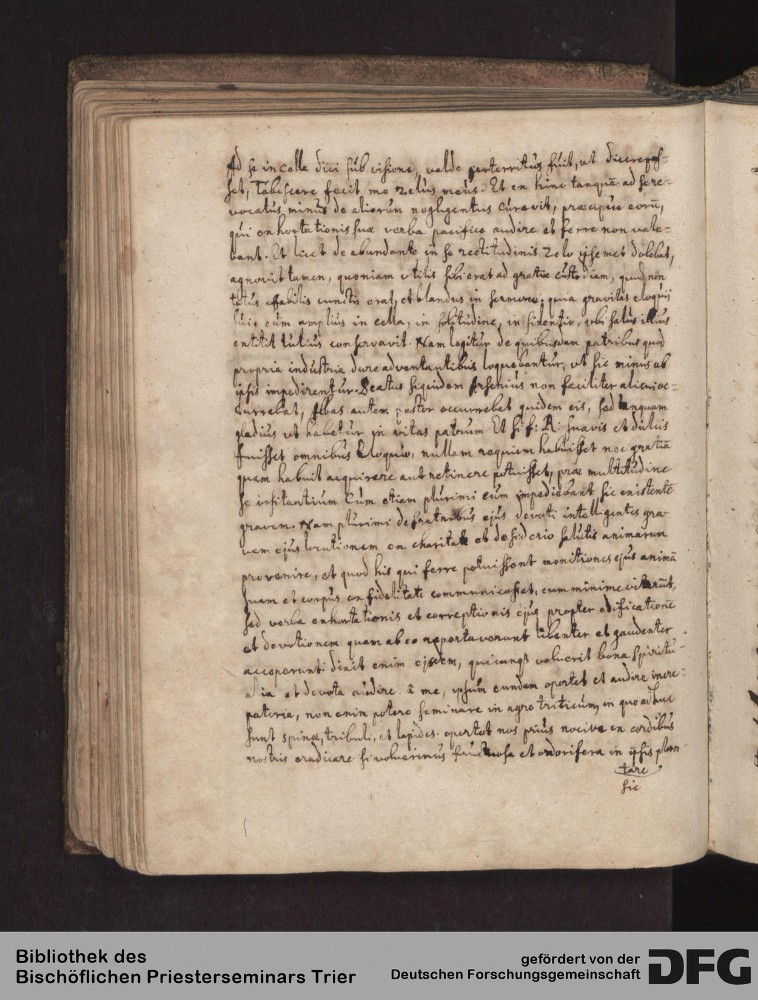 Ad se in cella dici sub visione, valde perterritus fuit, ut dicere pos=
set, Tabescere facit me zelus meus. Et en hinc tanquā ad se re=
vocatus minus de aliorum negligentiis curavit, præcipue eorū,
qui exhortationis suæ verba pacifice audire et ferre non vale=
bant. Et licet de abundante in se rectitudinis zelo ipsemet dolebat,
agnovit tamen, quoniam utilis sibi erat ad gratiæ custodiam, quod non
totus affabilis cunctis erat, et blandus in sermone; quia gravitas eloquij
sui, eum amplius in cella, in solitudine, in silentio, ubi salus illius
extitit tutius conservavit. Nam legitur de quibusdam patribus quod
propria industria dure adventantibus loquebantur, ut sic minus ab
ipsis impedirentur. Beatus siquidem Arsenius non faciliter alicui oc=
currebat, Abas autem pastor occurrebat quidem eis, sed tanquam
gladius ut habetur in vitas patrum Et si f: R: suavis et dulcis
fuisset omnibus eloquio, nullam requiem habuisset nec gratiā
quam habuit acquirere aut retinere potuisset, præ multitudine
se visitantium Cum etiam plurimi eum impediebant sic existentē
gravem. Nam plurimi de fratribus ejus devoti intelligentes gra=
vem ejus locutionem ex charitate et desiderio salutis animarum
provenire, et quod his qui ferre potuissent monitiones ejus animā
suam et corpus ex fidelitate communicasset, eum minime vitarūt,
sed verba exhortationis et correptionis ejus propter ædificationē
et devotionem quam ab eo reportaverunt libenter et gaudenter
acceperunt: dixit enim eisdem, quicunq3 voluerit bona spiritu=
alia et devota audire à me, ipsum eundem oportet et audire incre=
patoria, non enim potero seminare in agro triticum, in quo adhuc
sunt spinæ, tribuli, et lapides. oportet nos prius nociva ex cordibus
nostris eradicare si voluerimus fructuosa et odorifera in ipsis plan=
tare
sic
Bibliothek des
Bischöflichen Priesterseminars Trier
gefördert von der
Deutschen Forschungsgemeinschaft
DFG